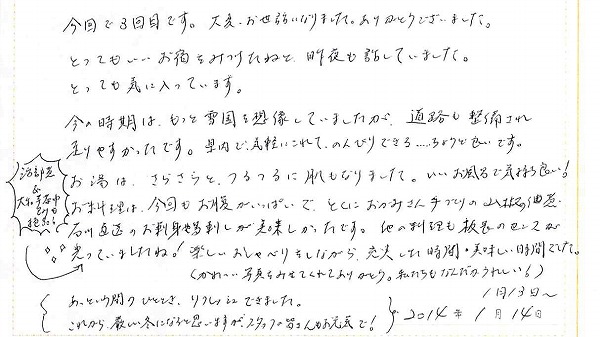 今回で3回目です。大変お世話になりました。ありがとうございました。
とってもいいお宿をみつけたねと、昨夜も話していました。
とっても気に入っています。
今の時期は、もっと雪国を想像していましたが、道路も整備され
走りやすかったです。県内で、気軽にこれて、のんびりできる……ちょうど良いです。
お湯は、さらさらと、つるつるに肌もなりました。いいお風呂で気持ち良い!
お料理は、今回もお腹がいっぱいで、とくにおかみさん手づくりの
直送のお刺身が美味しかったです。他の料理も板長のセンスが
光っていましたね! 楽しいおしゃべりをしながら、充実した時間・美味しい時間でした。
(かわいい写真をみせてくれてありがとう。私たちもなんだかうれしい!)
あっという間のひととき、リフレッシュできました。
これから、厳しい冬になると思いますが、スタッフの皆さんもお元気で!
1月13日〜
2014年1月14日